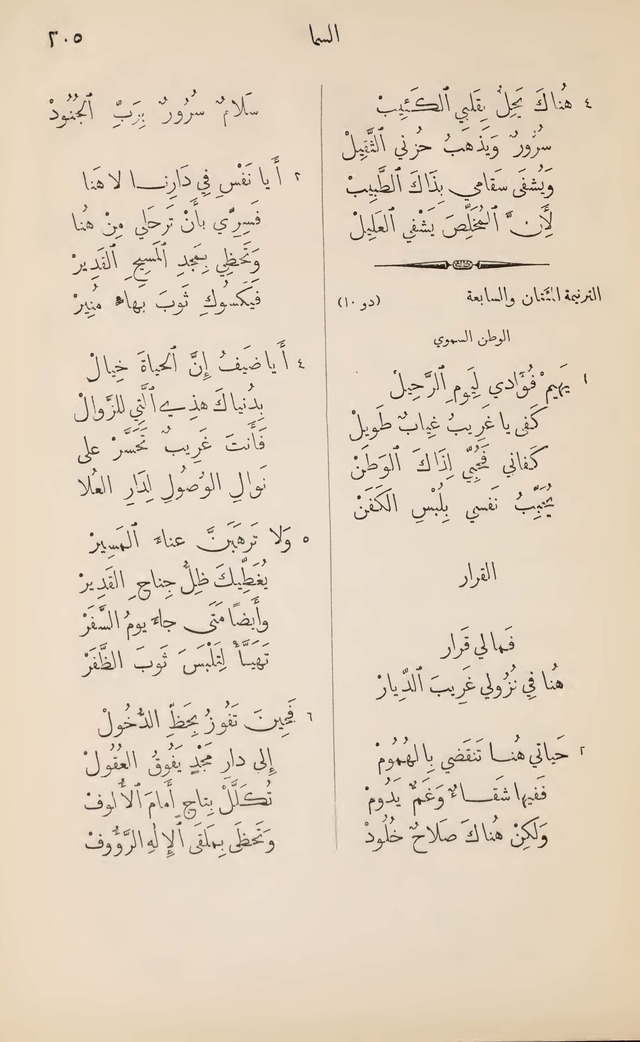 السما
٣٠٥
٤ هُنَاكَ يَحِلُّ بِقَلبِي ٱلكَئِيبْ
سُرُورٌ وَيَذهَبُ حُزنِي ٱلثَّقِيلْ
وَيُشفَى سَقَامِي بِذَاكَ ٱلطَّبِيبْ
لِأَنَّ ٱلمُخَلِّصَ يَشْفِي ٱلعَلِيلْ
الترنيمة المئتان والسابعة (دو ١٠)
الوطن السموي
١ يَهِيمُ فُؤَادِي لِيَومِ ٱلرَّحِيلْ
كَفَى يا غَرِيبُ غِيابٌ طَوِيلْ
كَفَانِي فَحُبِّي لِذَاكَ ٱلوَطَنْ
يُحَبِّبُ نَفسِي بِلُبْسِ ٱلكَفَنْ
القرار
فَمالِي قَرار
هُنا فِي نُزُولِي غَرِيبَ ٱلدِّيارْ
٢ حَياتِي هُنا تَنقَضِي بِالهُمُومْ
فَفِيها شَقاءٌ وَغَمٌّ يَدُومْ
وَلكِنْ هُنَاكَ صَلاحٌ خُلُودْ
سَلامٌ سُرُورٌ بِرَبِّ ٱلجُنُودْ
٣ أَيا نَفْسِ فِي دَارِنا لا هَنا
فَسِرِّي بِأَنْ تَرحَلِي مِنْ هُنا
وَتَحظِي بِمَجدِ ٱلمَسِيحِ ٱلقَدِيرْ
فَيَكسُوكِ ثَوبَ بهاءٍ مُنِيرْ
٤ أَيا ضَيفُ إِنَّ ٱلحَياةَ خِيالْ
بِدُنياكَ هذِي ٱلَّتِي للزَّوالْ
فَأَنتَ غَرِيبٌ تَحَسَّرْ على
نَوالِ الوُصُولِ لِدَارِ العُلا
٥ وَلا تَرهَبَنَّ عناءَ ٱلمَسِيرْ
يُغَطِّيكَ ظِلُّ جِناحِ القَدِيرْ
وأَيضًا مَتَى جاءَ يومُ السَّفَرْ
تَهَيَّأْ لِتَلْبَسَ ثَوبَ الظَّفَرْ
٦ فَحِينَ تَفُوزُ بِحَظِّ الدُّخُولْ
إِلى دارِ مَجْدٍ يَفُوقُ العُقُولْ
تُكَلَّلْ بِتاجٍ أَمامَ ٱلأُلوفْ
وَتَحظَى بِمَلقَى ٱلإِلهِ الرَّؤُوفْ